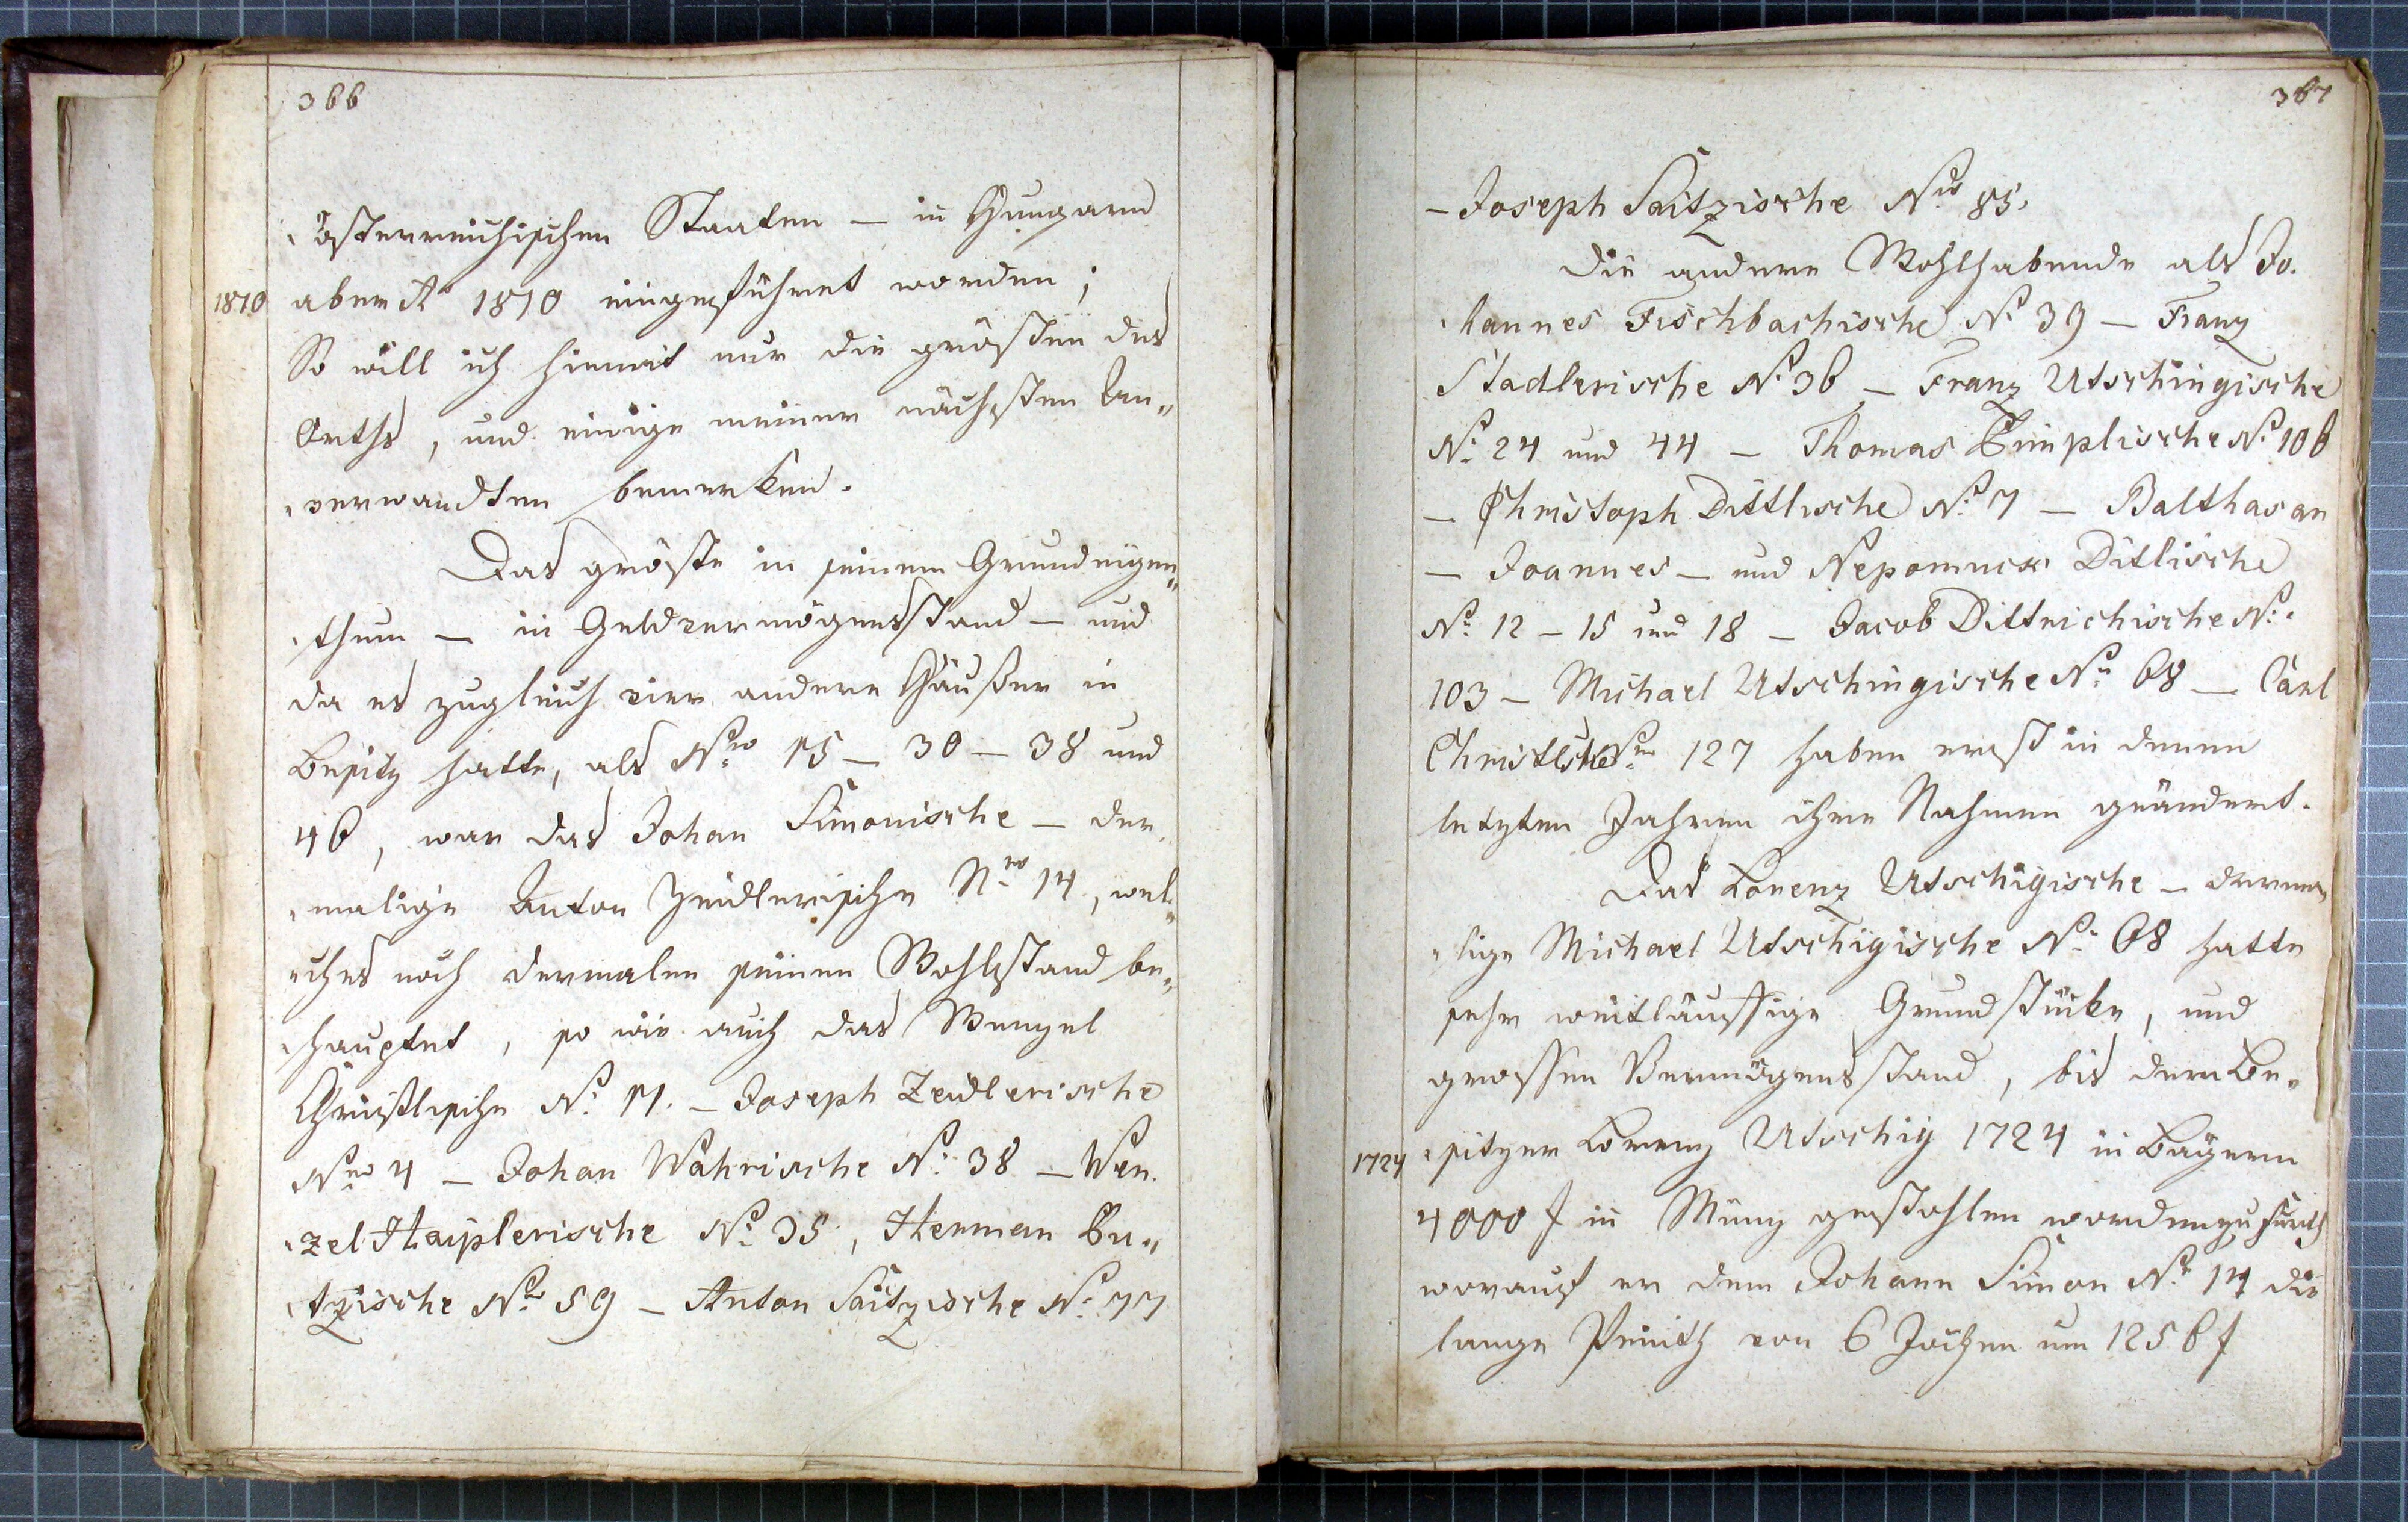 366
österreichischen Staaten — in Hungarn
1810 aber Aº 1810 eingeführet worden;
So will ich hiemit nur die größten des
Orths, und einige meiner nächsten An„
„verwandten bemerken.
Das größte in seinem Grundeigen„
„thum — in Geldvermögensstand — und
da es zugleich vier andere Häußer in
Besitz hatte, als Nro 15 — 30 — 38 und
46, war das Johan Simonische — der„
„malige Anton Zeidlerische Nro 14, wel„
„ches noch dermalen seinen Wohlstand be„
„hauptet, so wie auch das Wenzel
Christlische No 11. — Joseph Zeidlerische
Nro 4 — Johan Wahrische No 38 — Wen„
„zel Haiplerische No 35, Herman Bu„
„tzische No 59 — Anton Saitzische No 77
367
— Joseph Saitzische Nro 85.
Die andere Wohlhabende als Jo„
„hannes Fischbachische No 39 — Franz
Stadlerische No 36 — Franz Utschingische
No 24 und 44 — Thomas Zimplische No 106
— Christoph Dittlische No 7 — Balthasar
— Joannes — und Nepomuck Ditlische
No 12 — 15 und 18 — Jacob Dittrichische No
103 — Michael Utschingische No 68 — Carl
Christlische Nro 127 haben erst in denen
letzten Jahren ihre Nahmen geändert.
Das Lorenz Utschigische — derma„
„lige Michael Utschigische No 68 hatte
sehr weitläuffige Grundstücke, und
grossen Vermögensstand, bis dem Be„
1724 „sitzer Lorenz Utschig 1724 in Bayern
4000 f in Münz gestohlen worden zu Furth
worauf er dem Johann Simon No 14 die
lange Peinth von 6 Jochen um 1256 f